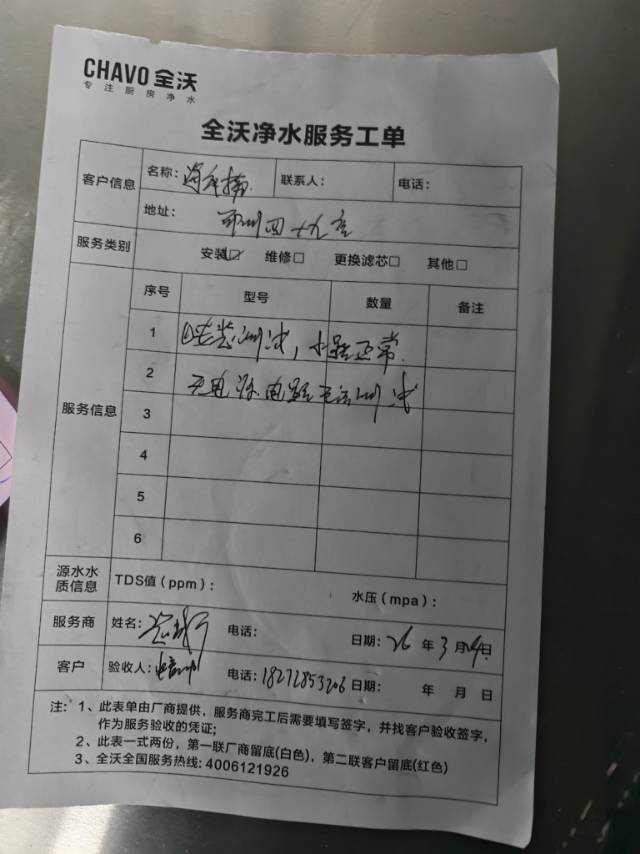 CHAVO 全沃
专注厨房净水
全沃净水服务工单
客户信息 名称: 联系人: 电话:
地址: 郑州四十九店
服务类别 安装☑ 维修□ 更换滤芯□ 其他□
服务信息 序号 型号 数量 备注
1 测试, 水路正常.
2 无电源 电路无法测试
3
4
5
6
源水水质信息 TDS值(ppm): 水压(mpa):
服务商 姓名: 电话: 日期: 26年3月4日
客户 验收人: 电话: 18272853206 日期: 年 月 日
注: 1、此表单由厂商提供,服务商完工后需要填写签字,并找客户验收签字,
作为服务验收的凭证;
2、此表一式两份,第一联厂商留底(白色),第二联客户留底(红色)
3、全沃全国服务热线: 4006121926